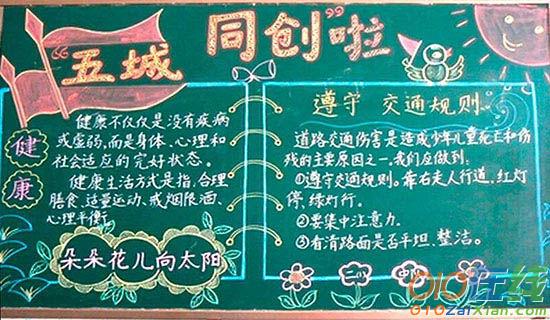 “五城同创”啦
健康
健康不仅仅是没有疾病
或虚弱,而是身体、心理和
社会适应的完好状态。
健康生活方式是指:合理
膳食、适量运动、戒烟限酒、
心理平衡。
朵朵花儿向太阳
遵守 交通规则。
道路交通伤害是造成少年儿童死亡和伤
残的主要原因之一。我们应做到:
①遵守交通规则。靠右走人行道,红灯
停,绿灯行。
②要集中注意力。
③看清路面是否平坦、整洁。
二(1) 中队
010在线
010zaixian.com